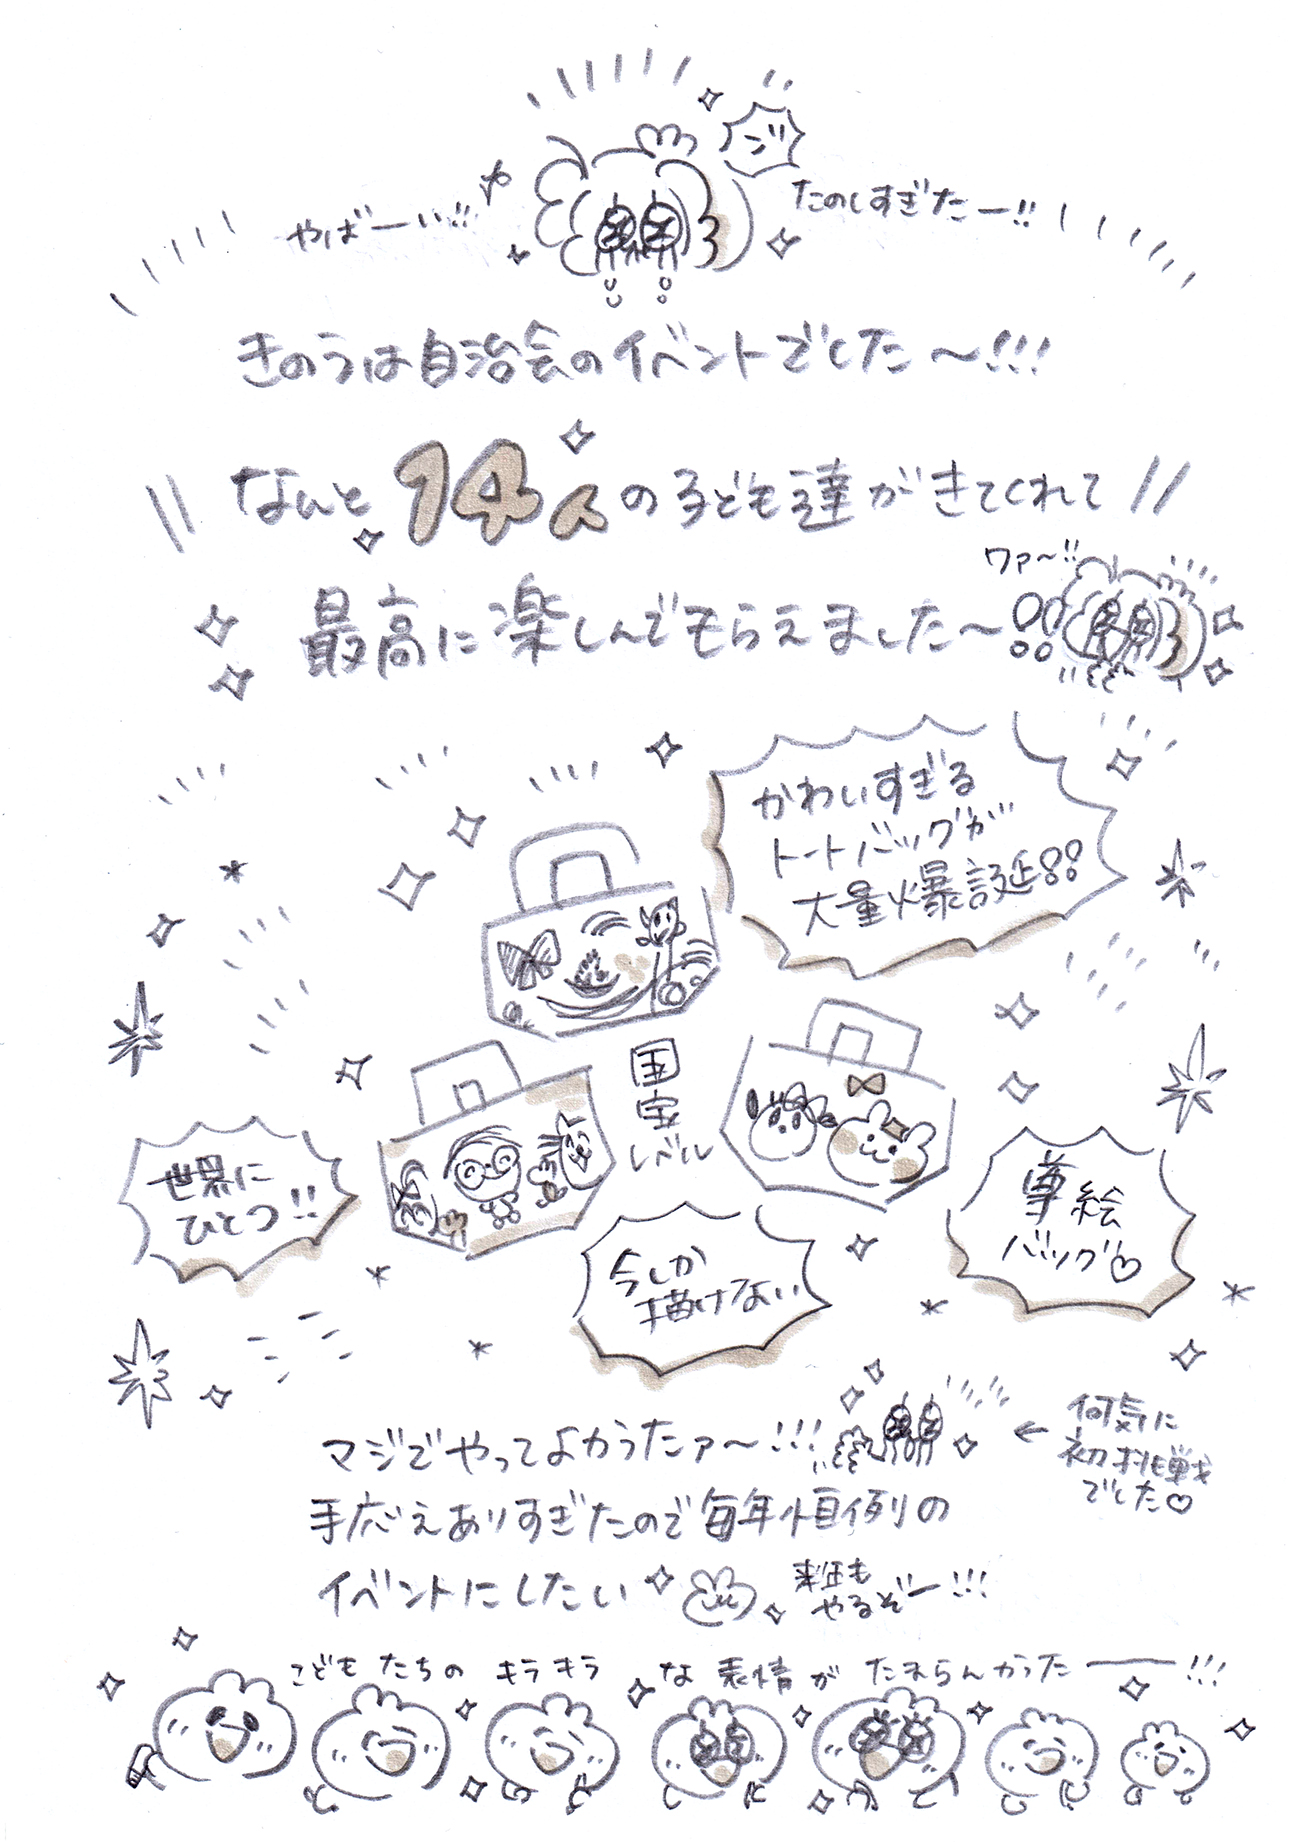 やばーい!!
たのしすぎたー!!
きのうは自治会のイベントでした〜!!!
なんと14人の子ども達がきてくれて
最高に楽しんでもらえました〜!!
ワァ〜!!
かわいすぎる
トートバッグが
大量爆誕!!
国宝
レベル
世界に
ひとつ!!
今しか
描けない
尊絵
バッグ♡
マジでやってよかったァ〜!!!
←何気に
初挑戦
でした♡
手応えありすぎたので毎年恒例の
イベントにしたい
来年も
やるぞー!!!
こどもたちのキラキラな表情がたまらんかったー!!!